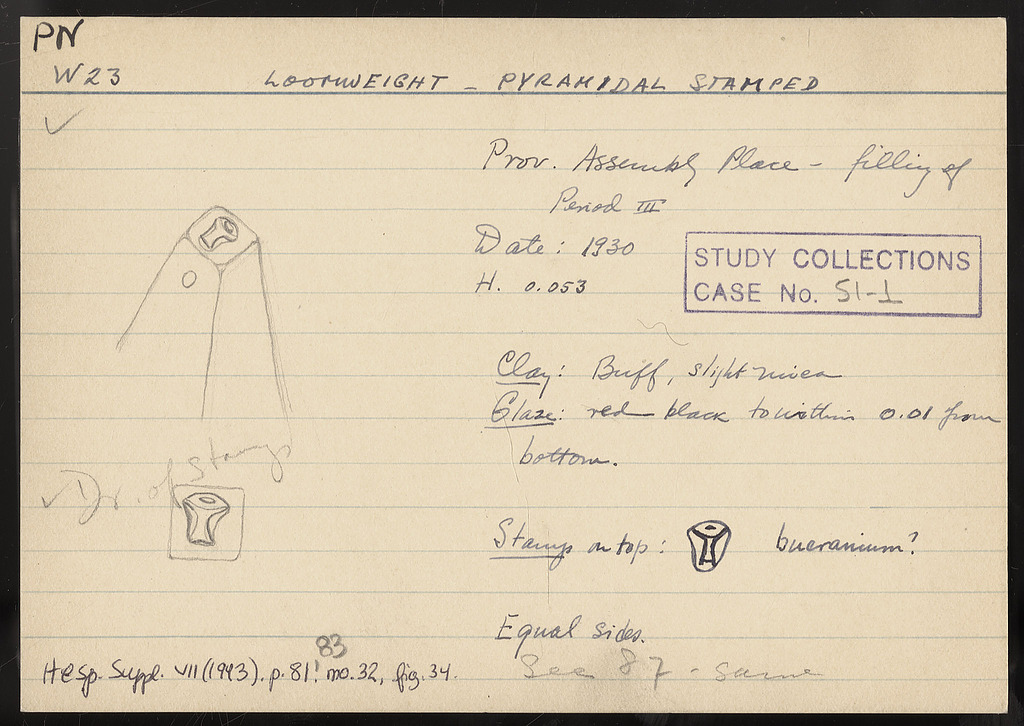 PN
W 23
LOOMWEIGHT - PYRAMIDAL STAMPED
Prov. Assembly Place - filling of
Period III
Date: 1930
H. 0.053
STUDY COLLECTIONS
CASE No. SI-1
Clay: Buff, slight mica
Glaze: red black to within 0.01 from
bottom.
Dr. of Stamp
Stamp on top: bucranium?
Equal sides.
See 87 - same
83
Hesp. Suppl. VII (1943). p. 81! no. 32, fig. 34.